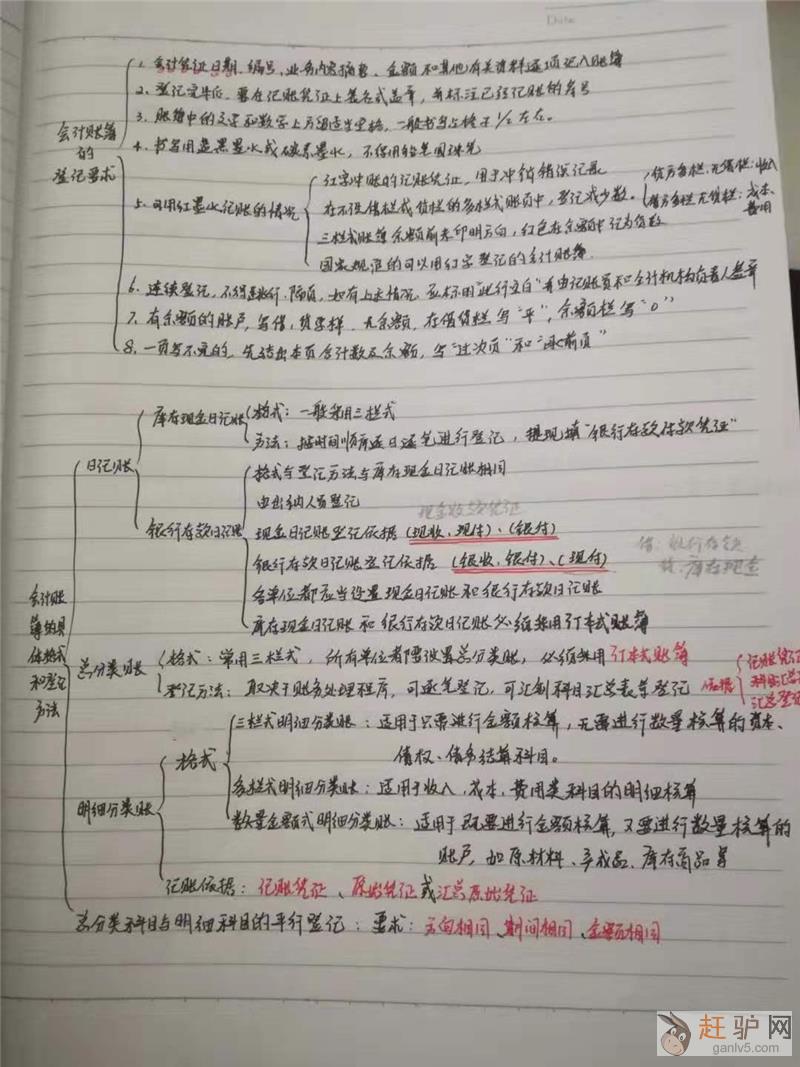 Date
1. 会计凭证日期、编号、业务内容摘要、金额和其他有关资料逐项记入账簿
2. 登记完毕后、要在记账凭证上签名或盖章，并标注已经记账的符号
3. 账簿中的文字和数字上方留适当空格，一般书写占格子1/2左右。
会计账簿的登记要求
4. 书写用蓝黑墨水或碳素墨水，不得用铅笔圆珠笔
5. 可用红墨水记账的情况
红字冲账的记账凭证，用于冲销错误记录
在不设借栏或贷栏的多栏式账页中，登记减少数。
贷方多栏，无借栏：收入
借方多栏，无贷栏：成本、费用
三栏式账簿余额前未印明方向，红色在余额中记为负数
国家规定的可以用红字登记的会计账簿
6. 连续登记，不得跳行、隔页，如有上述情况，应标明"此行空白"并由记账员和会计机构负责人盖章
7. 有余额的账户，写借，贷字样，无余额，在借贷栏写"平"，余额栏写"0"
8. 一页写不完的，先结出本页合计数及余额，写"过次页"和"承前页"
会计账簿的具体格式和登记方法
日记账
库存现金日记账
格式：一般采用三栏式
方法：按时间顺序逐日逐笔进行登记，提现填"银行存款付款凭证"
银行存款日记账
格式与登记方法与库存现金日记账相同
由出纳人员登记
现金收款凭证
现金日记账登记依据（现收、现付）、（银付）
银行存款日记账登记依据（银收、银付）、（现付）
借：银行存款
贷：库存现金
各单位都应当设置现金日记账和银行存款日记账
库存现金日记账和银行存款日记账必须采用订本式账簿
总分类账
格式：常用三栏式，所有单位都需设置总分类账，必须采用订本式账簿
登记方法：取决于账务处理程序，可逐笔登记，可汇制科目汇总表等登记 依据
记账凭证
科目汇总
汇总登记
明细分类账
格式
三栏式明细分类账：适用于只需进行金额核算，无需进行数量核算的资本、
债权、债务结算科目。
多栏式明细分类账：适用于收入，成本，费用类科目的明细核算
数量金额式明细分类账：适用于既要进行金额核算，又要进行数量核算的
账户，如原材料、产成品、库存商品等
记账依据：记账凭证、原始凭证或汇总原始凭证
总分类科目与明细科目的平行登记：要求：方向相同、期间相同、金额相同
赶驴网
ganlv5.com